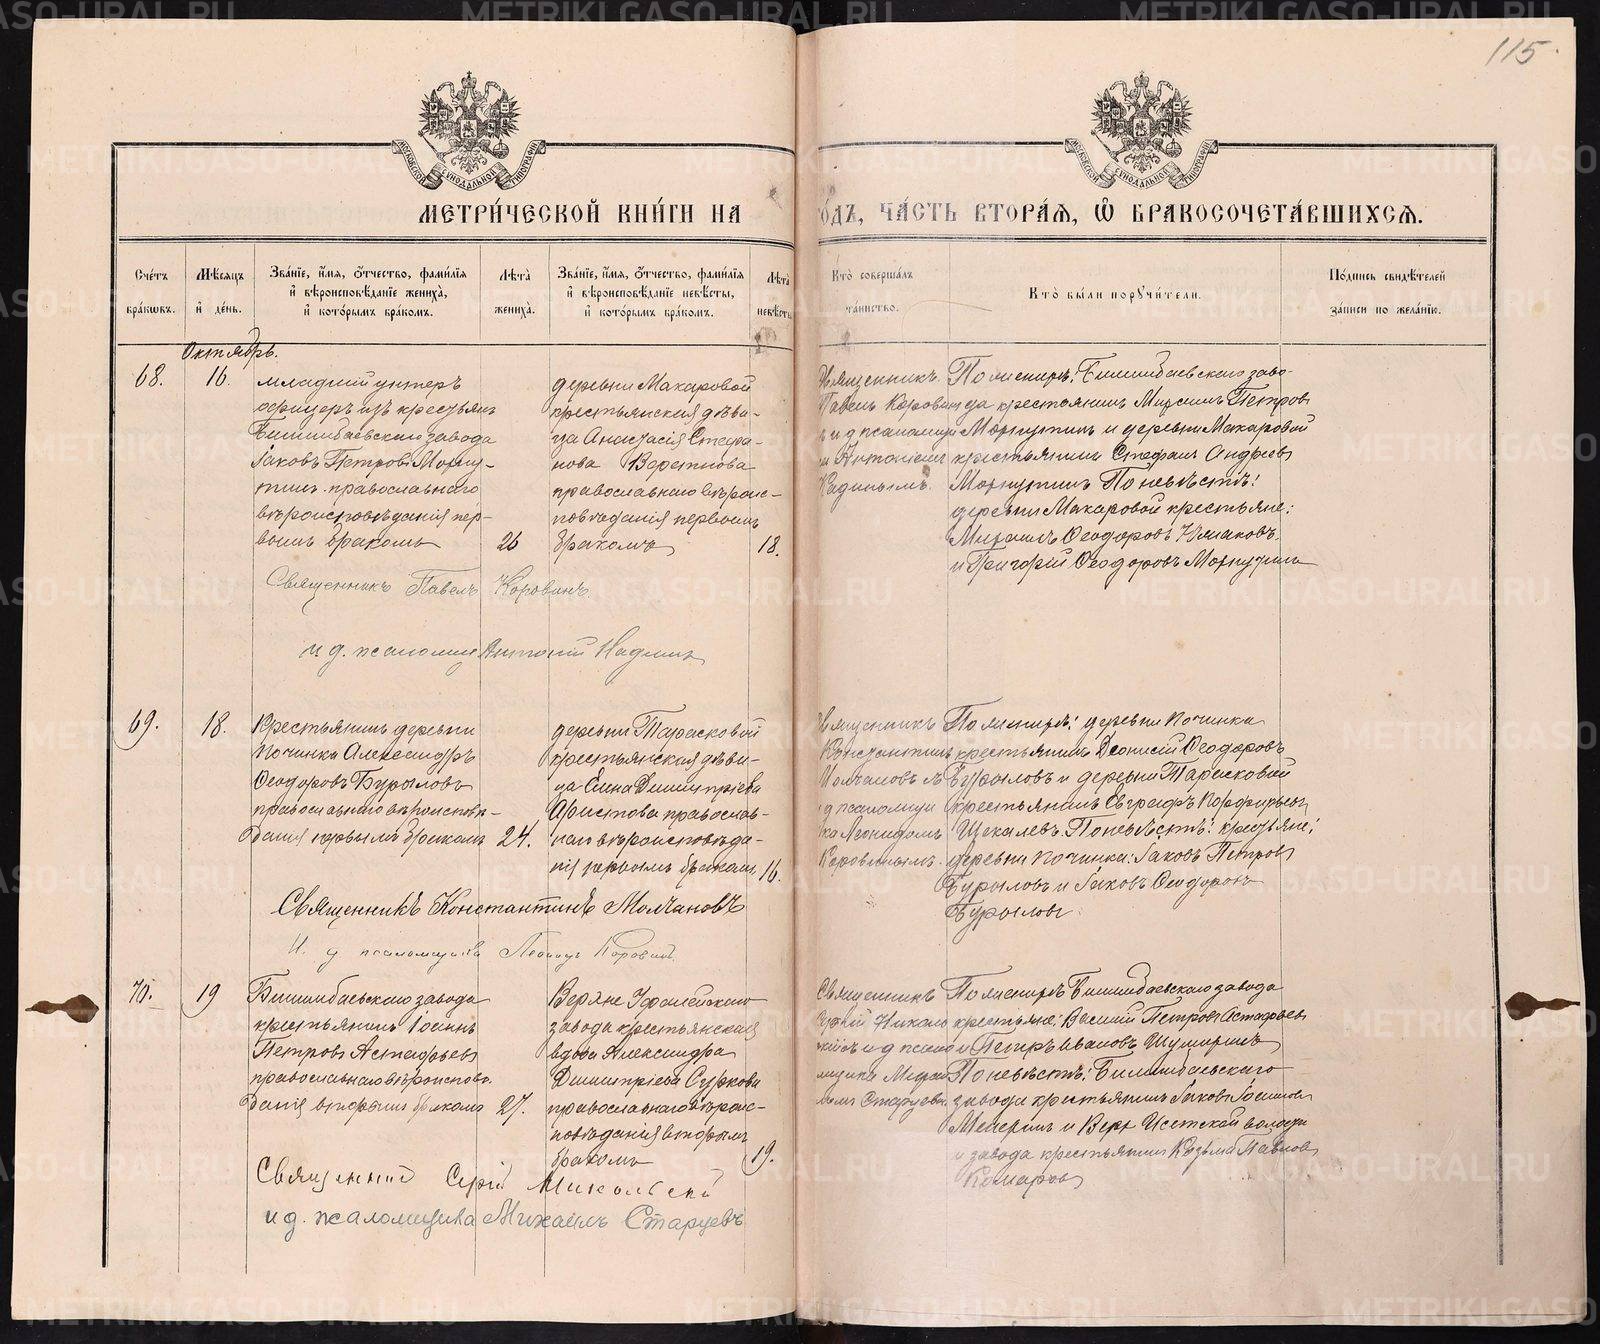 115.
МЕТРИ́ЧЕСКОЙ КНИ́ГИ НА
ГО́ДЪ, ЧА́СТЬ ВТОРА́Я, Ѿ БРАКОСОЧЕТА́ВШИХСЯ.
Сче́тъ бра́кωвъ.
Мѣ́сяцъ и҆ де́нь.
Зва́нїе, и҆́мя, ѻ҆́тчество, фами́лїя и҆ вѣроисповѣ́данїе жениха̀, и҆ кото́рымъ бра́комъ.
Лѣта̀ жениха̀.
Зва́нїе, и҆́мя, ѻ҆́тчество, фами́лїя и҆ вѣроисповѣ́данїе невѣ́сты, и҆ кото́рымъ бра́комъ.
Лѣта̀ невѣ́сты
Кто̀ соверша́лъ та́инство.
Кто̀ бы́ли порꙋчи́тели.
По́дпись свидѣ́телей за́писи по жела́нїю.
Октябрь.
68.
16.
младший унтеръ
офицеръ изъ крестьянъ
Билимбаевскаго завода
Іаковъ Петровъ
православнаго
вѣроисповѣданія пер-
вымъ бракомъ
26
деревни Макаровой
крестьянская дѣви-
ца Анастасія Стефа-
нова
православнаго вѣроис-
повѣданія первымъ
бракомъ
18.
Священникъ
Павелъ Коровин
и д псаломщи
Антоніем
По женихѣ: Билимбаевскаго заво-
да крестьянинъ Михаилъ Петровъ
и деревни Макаровой
крестьянинъ Стефанъ Андреевъ
По невѣстѣ:
деревни Макаровой крестьяне:
Михаилъ Ѳеодоровъ
и Григорій Ѳеодоровъ
Священникъ Павелъ Коровинъ.
и д. псаломщ Антоній
69.
18.
Крестьянинъ деревни
Починка Александръ
Ѳеодоровъ Бурыловъ
православнаго вѣроисповѣ-
данія первымъ бракомъ
24.
деревни Тарасковой
крестьянская дѣви-
ца Елена Димитріева
Аристова православ-
наго вѣроисповѣда-
нія первымъ бракомъ
16.
Священникъ
Константинъ
Молчановъ
д псаломщи
ка Леонидомъ
Коровинымъ.
По женихѣ: деревни Починка
крестьянинъ Діонисій Ѳеодоровъ
Бурыловъ и деревни Тарасковой
крестьянинъ Евграфъ Порфирьевъ
Щекалевъ. По невѣстѣ: крестьяне;
деревни Починка: Іаковъ Петровъ
Бурыловъ и Іаковъ Ѳеодоровъ
Бурыловъ
Священникъ Константинъ Молчановъ
И. д псаломщика Леонидъ Коровинъ.
70.
19
Билимбаевскаго завода
крестьянинъ Іоаннъ
Петровъ Астафьевъ
православнаго вѣроисповѣ
данія вторымъ бракомъ
27.
Верхне Уфалейскаго
завода крестьянская
вдова Александра
Димитріева Суркова
православнаго вѣроис-
повѣданія вторымъ
бракомъ
19.
Священникъ
Сергій Николь
и д псало
мщика Михаи
ломъ Старцевы.
По женихѣ Билимбаевскаго завода
крестьяне; Василій Петровъ Астафьевъ
и Петръ Ивановъ
По невѣстѣ: Билимбаевскаго
завода крестьянинъ Іаковъ
и Верх Исетской волости
и завода крестьянинъ Козьма Павловъ
Комаровъ
Священникъ Сергій Никольскій
и д. псаломщика Михаилъ Старцевъ